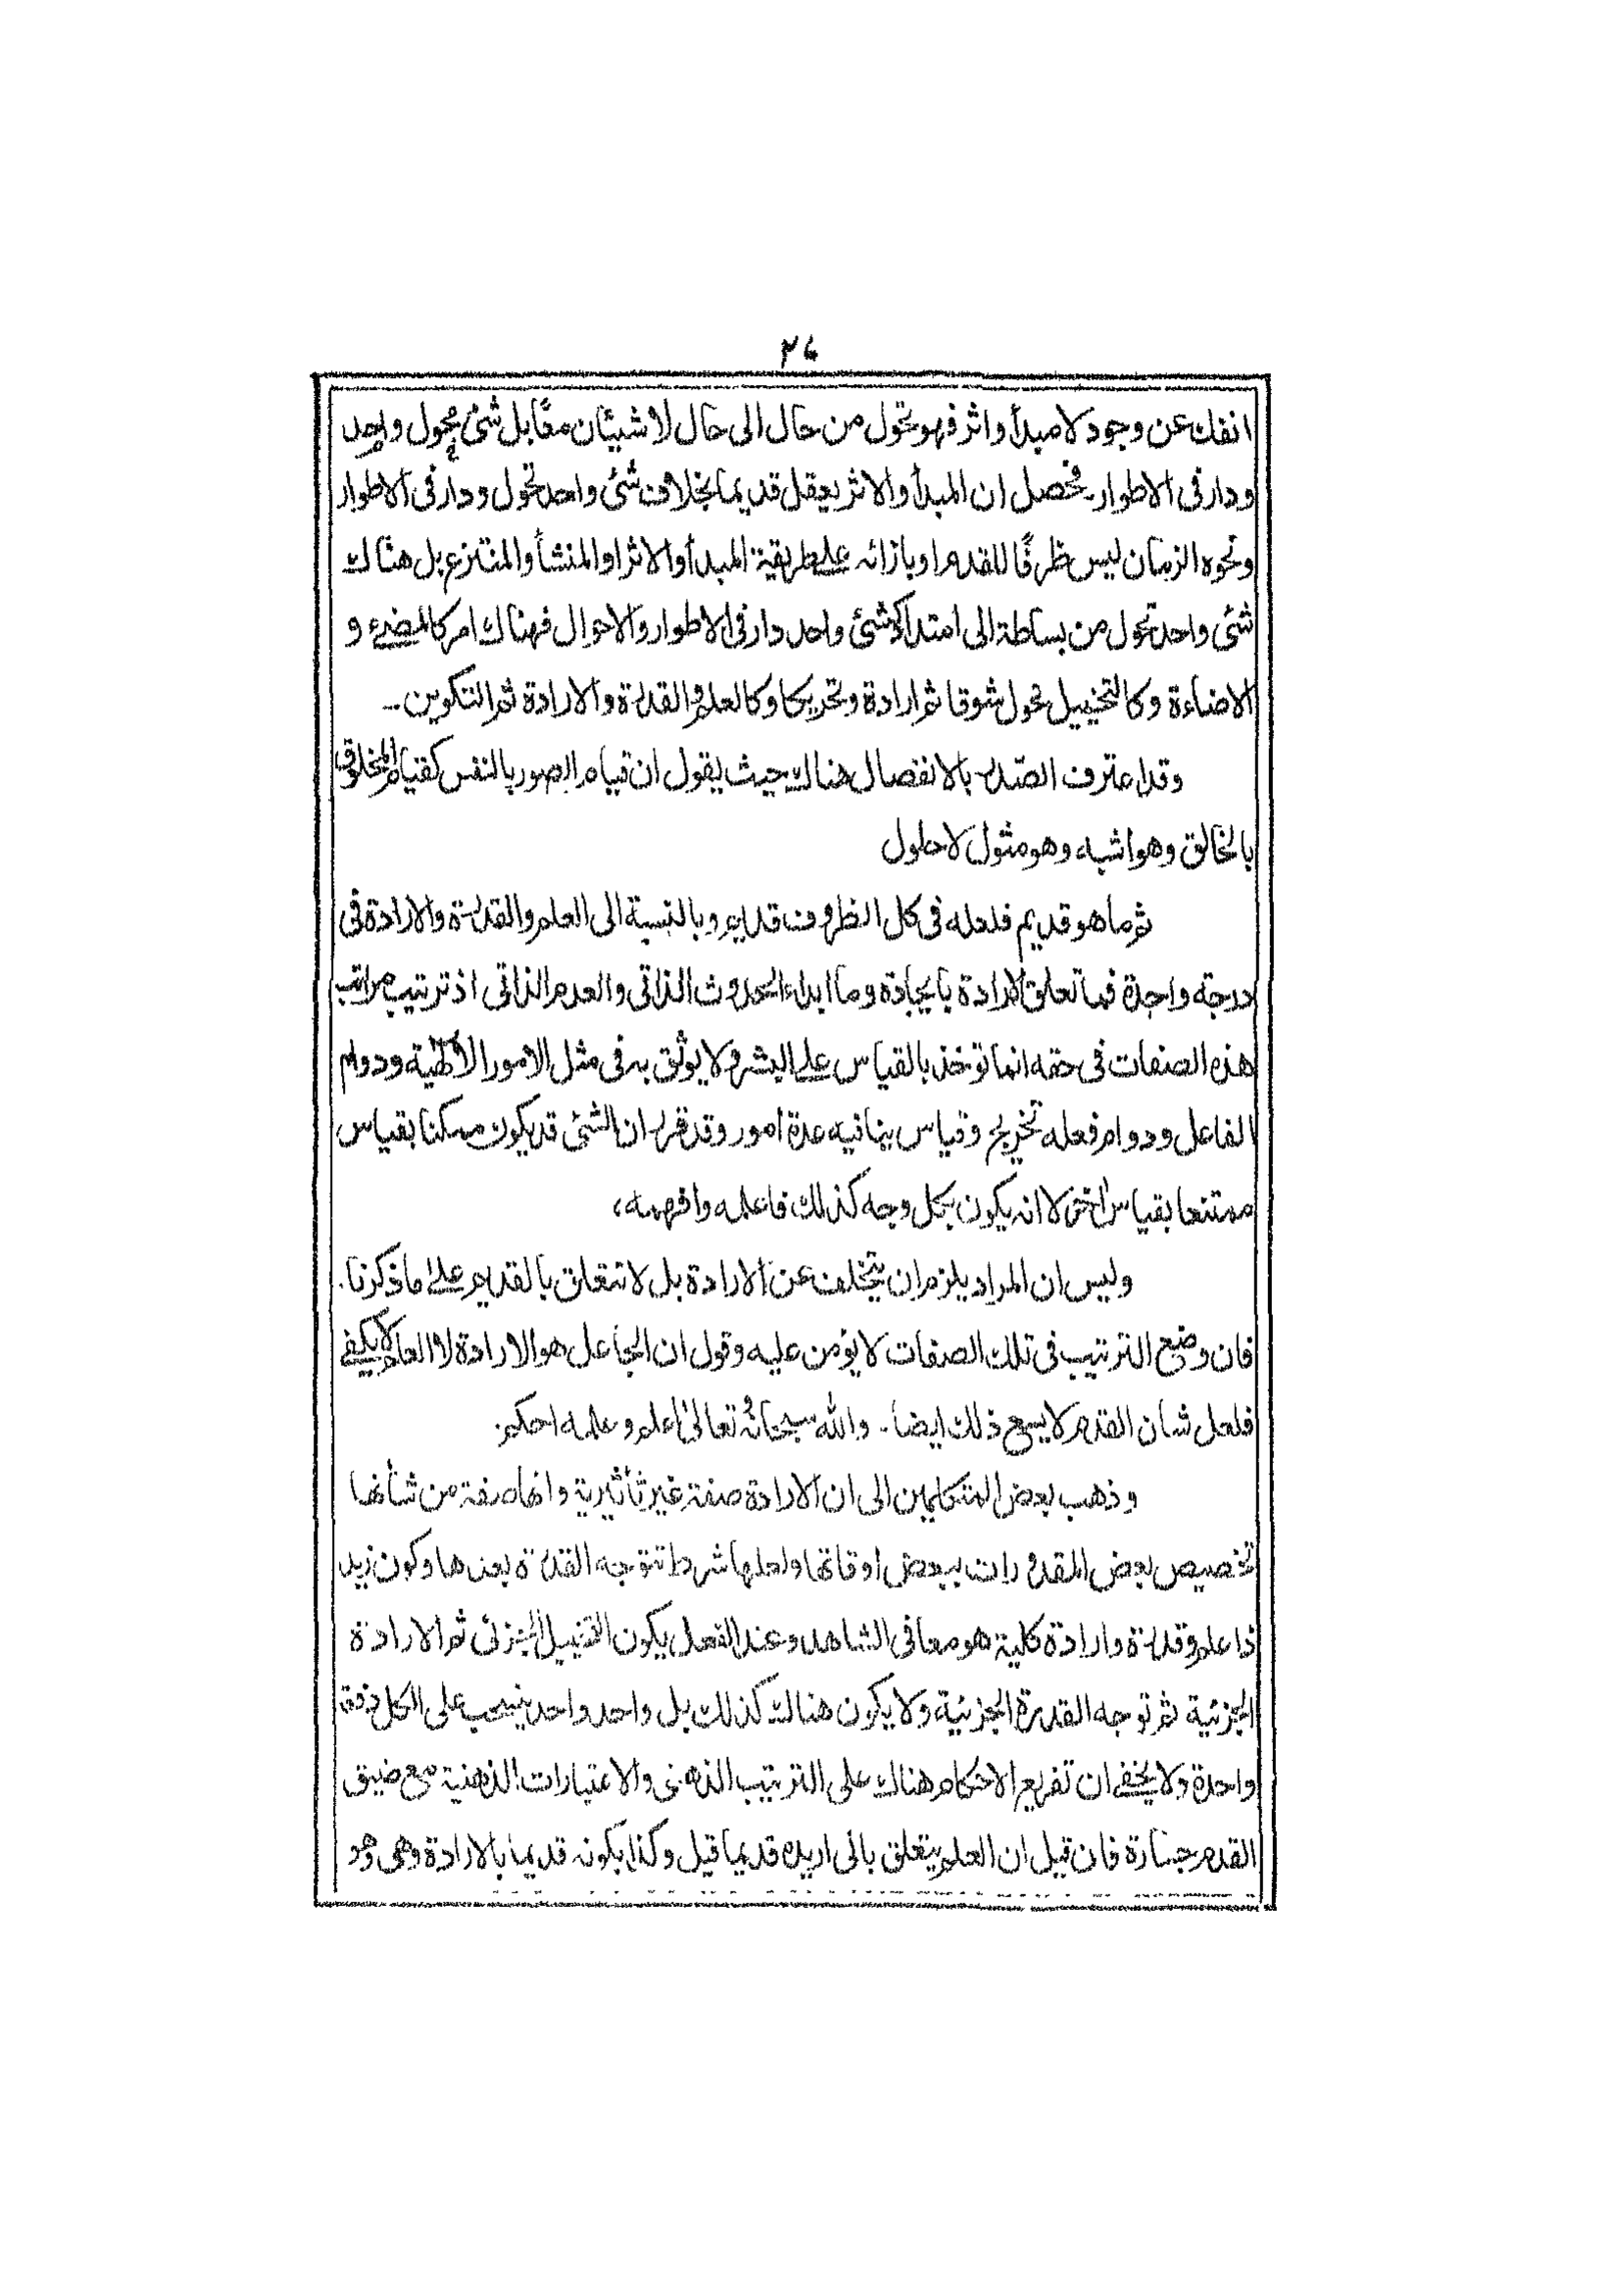 ٢٦
انفك عن وجود لا مبدأ واثر فهو تحول من حال الى حال لا شيئان معًا بل شئ تحول واحد
ودار فى الاطوار فحصل ان المبدأ والاثر يعقل قديما بخلاف شئ واحد تحول ودار فى الاطوار
ونحوه الزمان ليس ظرفًا للقدم او بازائه على طريقة المبدأ والاثر او المنشأ والمنتزع بل هناك
شئ واحد تحول من بساطة الى امتداد كشئ واحد دار فى الاطوار والاحوال فهناك امر كالمضئ و
الاضاءة وكالتخييل تحول شوقا ثم ارادة وتحريكا وكالعلم والقدرة والارادة ثم التكوين۔
وقد اعترف الصّدر بالانفصال هناك حيث يقول ان قيام الصور بالنفس كقيام المخلوق
بالخالق وهو اشبه وهو مثول لا حلول
ثم ما هو قديم فلعله فى كل الظروف قديم وبالنسبة الى العلم والقدرة والارادة فى
درجة واحدة فما تعلق الارادة بايجاده وما ابداء الحدوث الذاتى والعدم الذاتى اذ ترتيب مراتب
هذه الصفات فى حقه انما توخذ بالقياس على البشر ولا يوثق به فى مثل الامور الالٰهية ودوام
الفاعل ودوام فعله تخريج وقياس ينافيه عدة امور وقد قرر ان الشئ قد يكون ممكنا بقياس
ممتنعا بقياس اٰخر لا انه يكون بكل وجه كذلك فاعلمه وافهمه،
وليس ان المراد يلزم ان يتخلف عن الارادة بل لا تتعلق بالقديم على ما ذكرنا.
فان وضع الترتيب فى تلك الصفات لا يؤمن عليه وقول ان الجاعل هو الارادة لا العلم لا يكفى
فلعل شان القدم لا يسع ذلك ايضا۔ والله سبحانهٗ وتعالىٰ اعلم وعلمه احكم:
وذهب بعض المتكلمين الى ان الارادة صفة غير تأثيرية وانها صفة من شأنها
تخصيص بعض المقدورات ببعض اوقاتها ولعلها شرط تتوجه القدرة بعدها وكون زيد
ذا علم وقدرة وارادة كلية هو معا فى الشاهد وعند الفعل يكون التخييل الجزئى ثم الارادة
الجزئية ثم توجه القدرة الجزئية ولا يكون هناك كذلك بل واحد واحد ينسحب على الكل دفعة
واحدة ولا يخفى ان تفريع الاحكام هناك على الترتيب الذهنى والاعتبارات الذهنية مع ضيق
القدم جسارة فان قيل ان العلم يتعلق بانى اريده قديما قيل وكذا بكونه قديما بالارادة وهى وهو